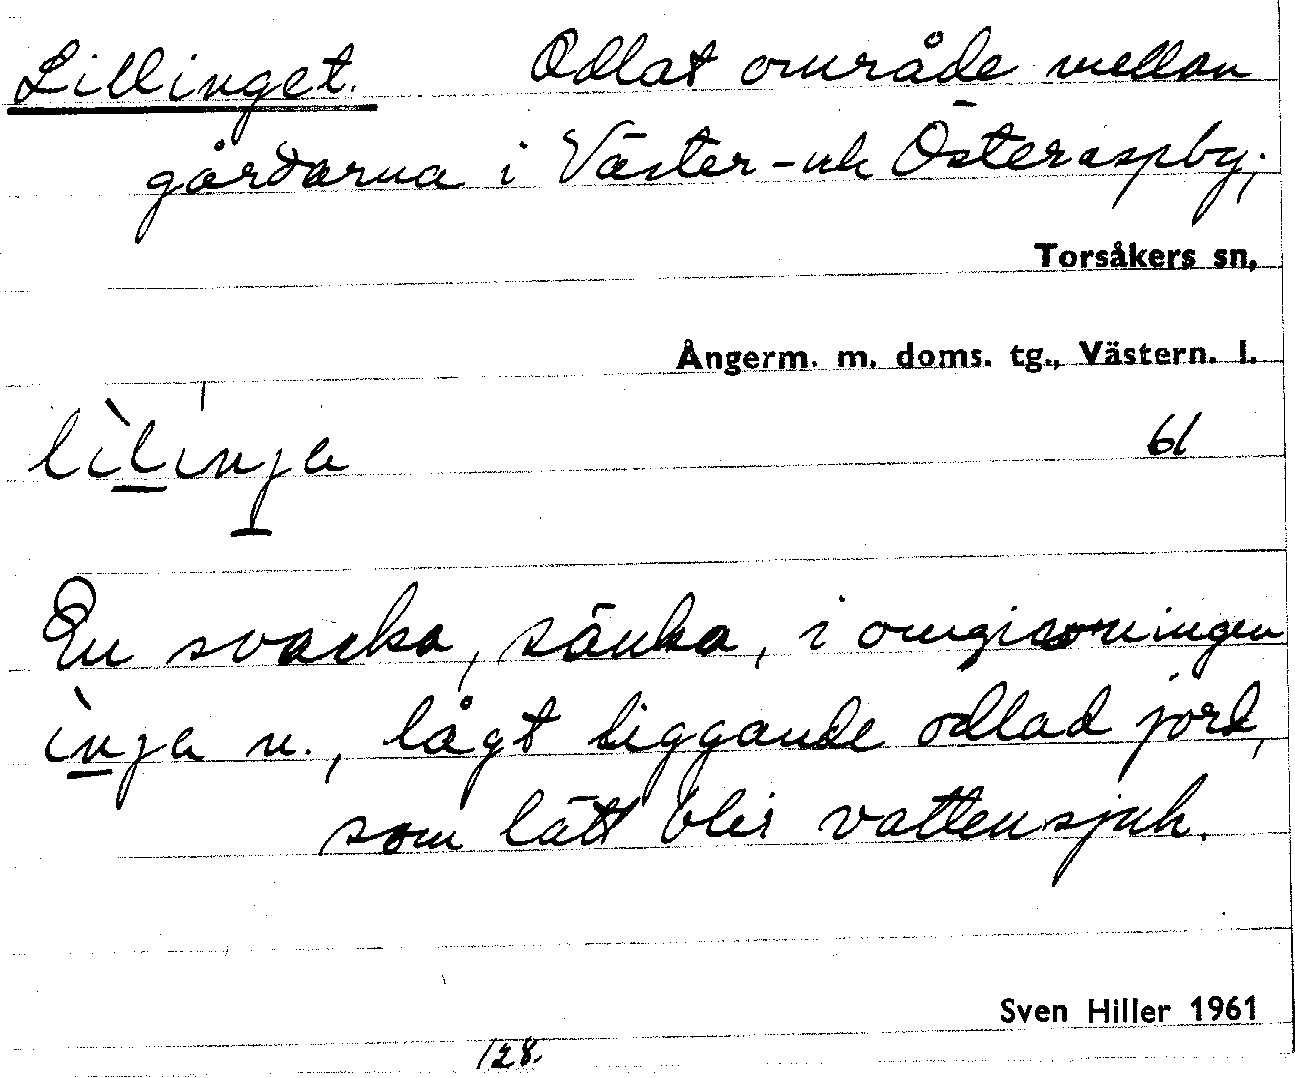 Lillinget. Odlat område mellan
gårdarna i Väster- uk Österaspby;
Torsåkers sn,
Ångerm. m. doms. tg., Västern. l.
lìlinja 61
En svacka, sänka, i omgivningen
ìnja n., lågt liggande odlad jord,
som lätt blir vattensjuk.
Sven Hiller 1961
128.